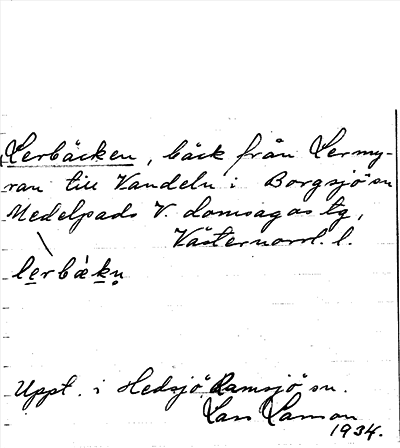 Lerbäcken, bäck från Lermy-
ran till Vandeln i Borgsjö sn
Medelpads V. domsagas tg,
Västernorrl. l.
lerbäkn
Uppt. i Hedsjö Ramsjö sn.
Lars Larsson
1934.